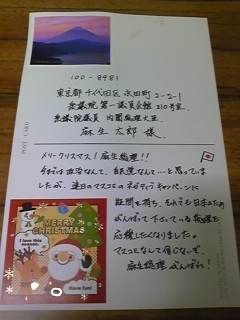 100-8981
東京都千代田区永田町2-2-1
衆議院第一議員会館210号室
衆議院議員 内閣総理大臣
麻生太郎様
POST CARD
メリークリスマス!麻生総理!!
今までは政治なんて、自民党なんて…と思っていま
したが、連日のマスコミのネガティブキャンペーンに
疑問を持ち、それでも日本のため
がんばって下さっている総理を
応援したくなりました。
マスコミなんて信じないぞ。
麻生総理がんばれ!
I love this
MERRY
CHRISTMAS
Have fun!